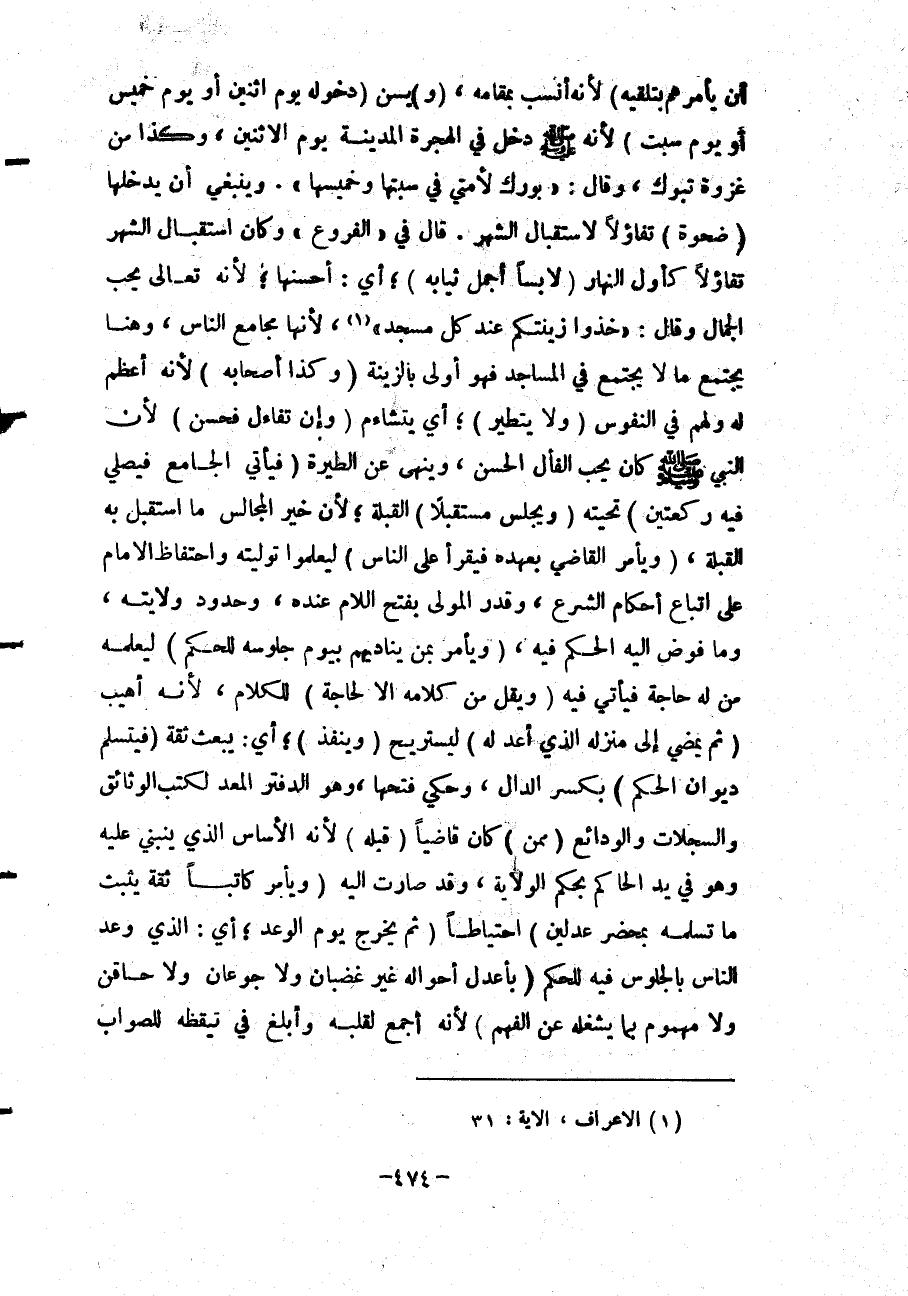 أن يأمرهم بتلقيه) لأنه أنسب بمقامه ، (و) يسن (دخوله يوم اثنين أو يوم خميس
أو يوم سبت ) لأنه ﷺ دخل في الهجرة المدينـة يوم الاثنين ، وكذا من
غزوة تبوك ، وقال : « بورك لأمتي في سبتها وخميسها » . وينبغي أن يدخلها
( ضحوة ) تفاؤلاً لاستقبال الشهر . قال في « الفروع » وكان استقبـال الشهر
تفاؤلاً كأول النهار ( لابساً أجمل ثيابه ) ؛ أي : أحسنها ؛ لأنه تعـالى يحب
الجمال وقال : «خذوا زينتكم عند كل مسجد»(١) ، لأنها مجامع الناس ، وهنـا
يجتمع ما لا يجتمع في المساجد فهو أولى بالزينة ( وكذا أصحابه ) لأنه أعظم
له ولهم في النفوس ( ولا يتطير ) ؛ أي يتشاءم ( وإن تفاءل فحسن ) لأن
النبي ﷺ كان يحب الفأل الحسن ، وينهى عن الطيرة ( فيأتي الجـامع فيصلي
فيه ركعتين ) تحيته ( ويجلس مستقبلًا ) القبلة ؛ لأن خير المجالس ما استقبل به
القبلة ، ( ويأمر القاضي بعهده فيقرأ على الناس ) ليعلموا توليته واحتفاظ الامام
على اتباع أحكام الشرع ، وقدر المولى بفتح اللام عنده ، وحدود ولايتـه ،
وما فوض اليه الحكم فيه ، ( ويأمر بمن يناديهم بيوم جلوسه للحـكم ) ليعلمـه
من له حاجة فيأتي فيه ( ويقل من كلامه الا لحاجة ) للكلام ، لأنـه أهيب
( ثم يمضي إلى منزله الذي أعد له ) ليستريـح ( وينفذ ) ؛ أي: يبعث ثقة (فيتسلم
ديوان الحكم ) بكسر الدال ، وحكي فتحها ، وهو الدفتر المعد لكتب الوثائق
والسجلات والودائع ( ممن ) كان قاضياً ( قبله ) لأنه الأساس الذي ينبني عليه
وهو في يد الحاكم بحكم الولاية ، وقد صارت اليه ( ويأمر كاتبـاً ثقة يثبت
ما تسلمـه بمحضر عدلين ) احتياطـاً ( ثم يخرج يوم الوعد ؛ أي : الذي وعد
الناس بالجلوس فيه للحكم ( بأعدل أحواله غير غضبان ولا جوعان ولا حـاقن
ولا مهموم بما يشغله عن الفهم ) لأنه أجمع لقلبـه وأبلغ في تيقظه للصواب
(١) الاعراف ، الاية : ٣١
-٤٧٤-